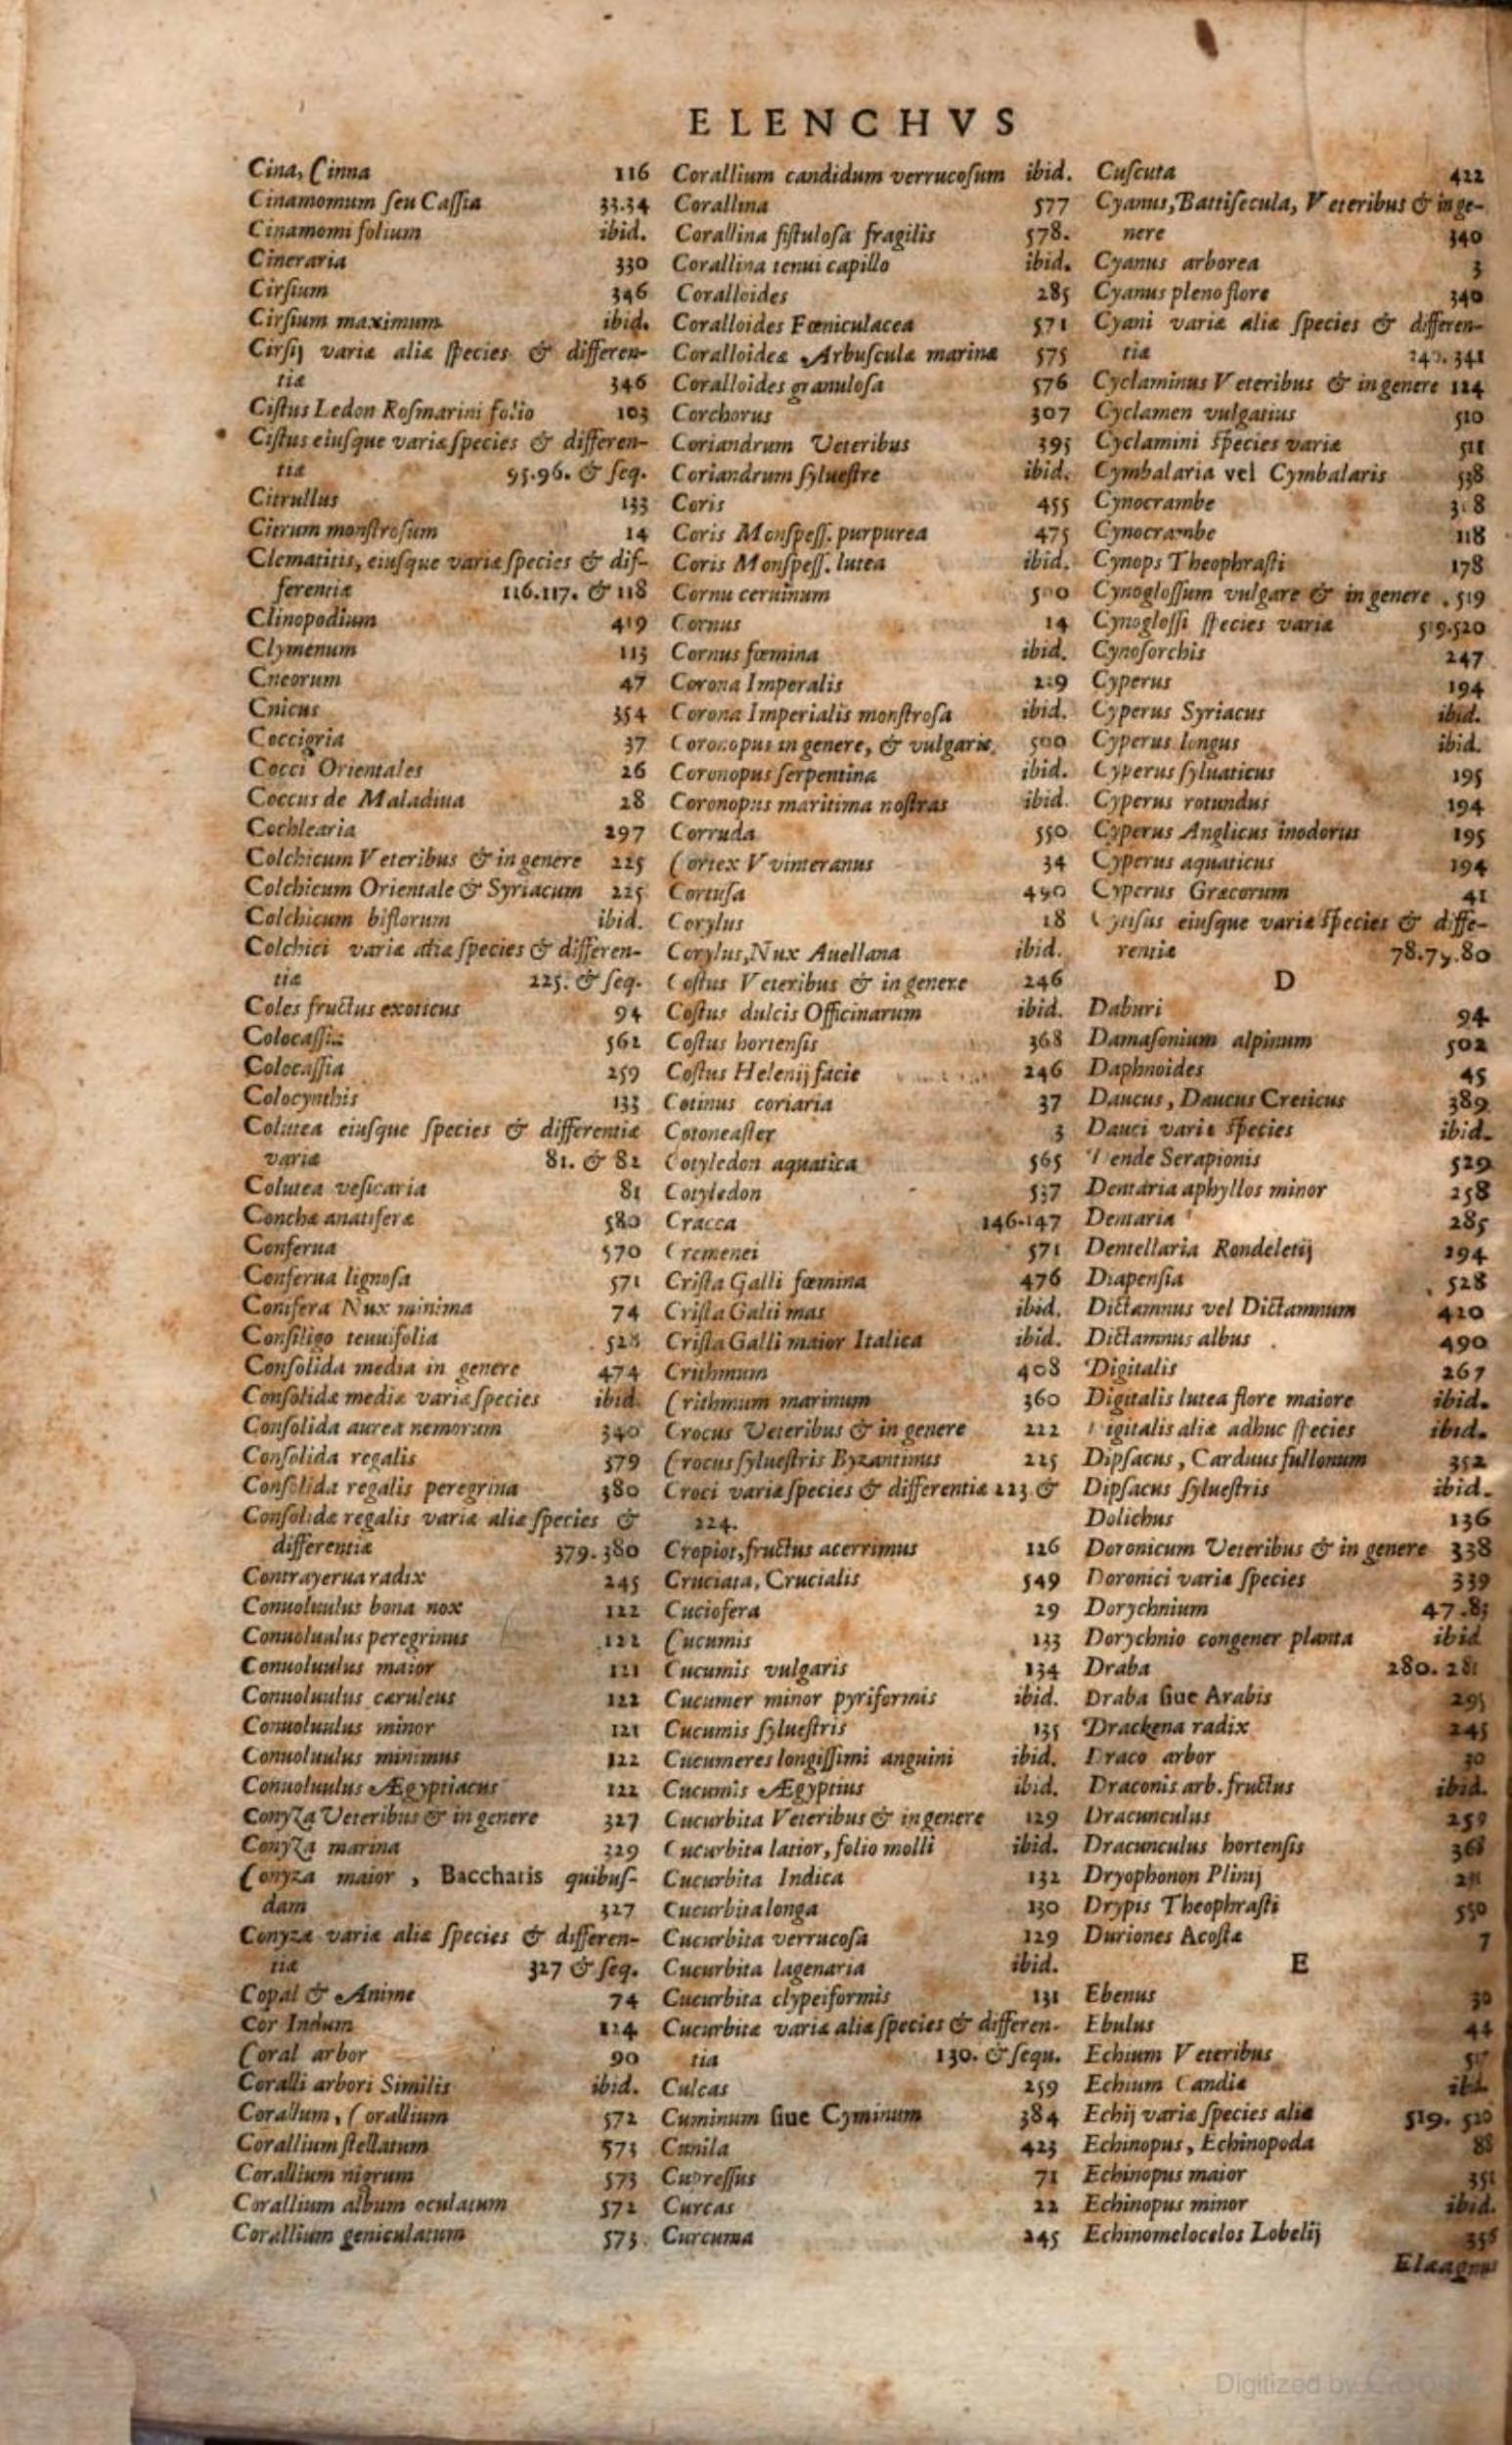 ELENCHVS
Cina, Cinna 116
Cinamomum ſeu Caſſia 33.34
Cinamomi folium ibid.
Cineraria 330
Cirſium 346
Cirſium maximum ibid.
Cirſij variæ aliæ ſpecies & differen-
tiæ 346
Ciſtus Ledon Roſmarini folio 103
Ciſtus eiuſque variæ ſpecies & differen-
tiæ 95.96. & ſeq.
Citrullus 133
Citrum monſtroſum 14
Clematitis, eiuſque variæ ſpecies & dif-
ferentiæ 116.117. & 118
Clinopodium 419
Clymenum 113
Cneorum 47
Cnicus 354
Coccigria 37
Cocci Orientales 26
Coccus de Maladiua 28
Cochlearia 297
Colchicum Veteribus & in genere 225
Colchicum Orientale & Syriacum 225
Colchicum biflorum ibid.
Colchici variæ aliæ ſpecies & differen-
tiæ 225. & ſeq.
Coles fructus exoticus 94
Colocaſſia 562
Colocaſſia 259
Colocynthis 133
Colutea eiuſque ſpecies & differentiæ
variæ 81. & 82
Colutea veſicaria 81
Conchæ anatiferæ 580
Conferua 570
Conferua lignoſa 571
Conifera Nux minima 74
Conſiligo tenuifolia 528
Conſolida media in genere 474
Conſolidæ mediæ variæ ſpecies ibid.
Conſolida aurea nemorum 340
Conſolida regalis 379
Conſolida regalis peregrina 380
Conſolidæ regalis variæ aliæ ſpecies &
differentiæ 379.380
Contrayerua radix 245
Conuoluulus bona nox 122
Conuoluulus peregrinus 122
Conuoluulus maior 121
Conuoluulus cæruleus 122
Conuoluulus minor 121
Conuoluulus minimus 122
Conuoluulus Ægyptiacus 122
Conyza Veteribus & in genere 327
Conyza marina 329
Conyza maior, Baccharis quibuſ-
dam 327
Conyzæ variæ aliæ ſpecies & differen-
tiæ 327 & ſeq.
Copal & Anime 74
Cor Indum 114
Coral arbor 90
Coralli arbori Similis ibid.
Corallum, Corallium 572
Corallium ſtellatum 573
Corallium nigrum 573
Corallium album oculatum 572
Corallium geniculatum 573
Corallium candidum verrucoſum ibid.
Corallina 577
Corallina fiſtuloſa fragilis 578.
Corallina tenui capillo ibid.
Coralloides 285
Coralloides Fœniculacea 571
Coralloidea Arbuſcula marina 575
Coralloides granuloſa 576
Corchorus 307
Coriandrum Veteribus 395
Coriandrum ſylueſtre ibid.
Coris 455
Coris Monſpeſſ. purpurea 475
Coris Monſpeſſ. lutea ibid.
Cornu ceruinum 500
Cornus 14
Cornus fœmina ibid.
Corona Imperalis 219
Corona Imperialis monſtroſa ibid.
Coronopus in genere, & vulgaris. 500
Coronopus ſerpentina ibid.
Coronopus maritima noſtras ibid.
Corruda 550
Cortex Vvinteranus 34
Cortuſa 490
Corylus 18
Corylus, Nux Auellana ibid.
Coſtus Veteribus & in genere 246
Coſtus dulcis Officinarum ibid.
Coſtus hortenſis 368
Coſtus Helenij facie 246
Cotinus coriaria 37
Cotoneaſter 3
Cotyledon aquatica 565
Cotyledon 537
Cracca 146.147
Cremenei 571
Criſta Galli fœmina 476
Criſta Galli mas ibid.
Criſta Galli maior Italica ibid.
Crithmum 408
Crithmum marinum 360
Crocus Veteribus & in genere 222
Crocus ſylueſtris Byzantinus 225
Croci variæ ſpecies & differentiæ 223 &
224.
Cropiot, fructus acerrimus 126
Cruciata, Crucialis 549
Cuciofera 29
Cucumis 133
Cucumis vulgaris 134
Cucumer minor pyriformis ibid.
Cucumis ſylueſtris 135
Cucumeres longiſſimi anguini ibid.
Cucumis Ægyptius ibid.
Cucurbita Veteribus & in genere 129
Cucurbita latior, folio molli ibid.
Cucurbita Indica 132
Cucurbita longa 130
Cucurbita verrucoſa 129
Cucurbita lagenaria ibid.
Cucurbita clypeiformis 131
Cucurbitæ variæ aliæ ſpecies & differen-
tia 130. & ſequ.
Culcas 259
Cuminum ſiue Cyminum 384
Cunila 423
Cupreſſus 71
Curcas 22
Curcuma 245
Cuſcuta 422
Cyanus, Battiſecula, Veteribus & in ge-
nere 340
Cyanus arborea 3
Cyanus pleno flore 340
Cyani variæ aliæ ſpecies & differen-
tiæ 341
Cyclaminus Veteribus & in genere 124
Cyclamen vulgatius 510
Cyclamini ſpecies variæ 511
Cymbalaria vel Cymbalaris 538
Cynocrambe 318
Cynocrambe 118
Cynops Theophraſti 178
Cynogloſſum vulgare & in genere. 519
Cynogloſſi ſpecies variæ 519.520
Cynoſorchis 247
Cyperus 194
Cyperus Syriacus ibid.
Cyperus longus ibid.
Cyperus ſyluaticus 195
Cyperus rotundus 194
Cyperus Anglicus inodorus 195
Cyperus aquaticus 194
Cyperus Græcorum 41
Cytiſus eiuſque variæ ſpecies & diffe-
rentiæ 78.79.80
D
Daburi 94
Damaſonium alpinum 502
Daphnoides 45
Daucus, Daucus Creticus 389
Dauci variæ ſpecies ibid.
Dende Serapionis 529
Dentaria aphyllos minor 258
Dentaria 285
Dentellaria Rondeletij 294
Diapenſia 528
Dictamnus vel Dictamnum 420
Dictamnus albus 490
Digitalis 267
Digitalis lutea flore maiore ibid.
Digitalis aliæ adhuc ſpecies ibid.
Dipſacus, Carduus fullonum 352
Dipſacus ſylueſtris ibid.
Dolichus 136
Doronicum Veteribus & in genere 338
Doronici variæ ſpecies 339
Dorychnium 47.
Dorychnio congener planta ibid
Draba 280. 281
Draba ſiue Arabis 295
Drackena radix 245
Draco arbor 30
Draconis arb. fructus ibid.
Dracunculus 259
Dracunculus hortenſis 368
Dryophonon Plinij
Drypis Theophraſti 550
Duriones Acoſtæ 7
E
Ebenus 30
Ebulus 44
Echium Veteribus
Echium Candiæ ibid.
Echij variæ ſpecies aliæ 519. 520
Echinopus, Echinopoda 88
Echinopus maior 351
Echinopus minor ibid.
Echinomelocelos Lobelij
Elæagnus
Digitized by Google